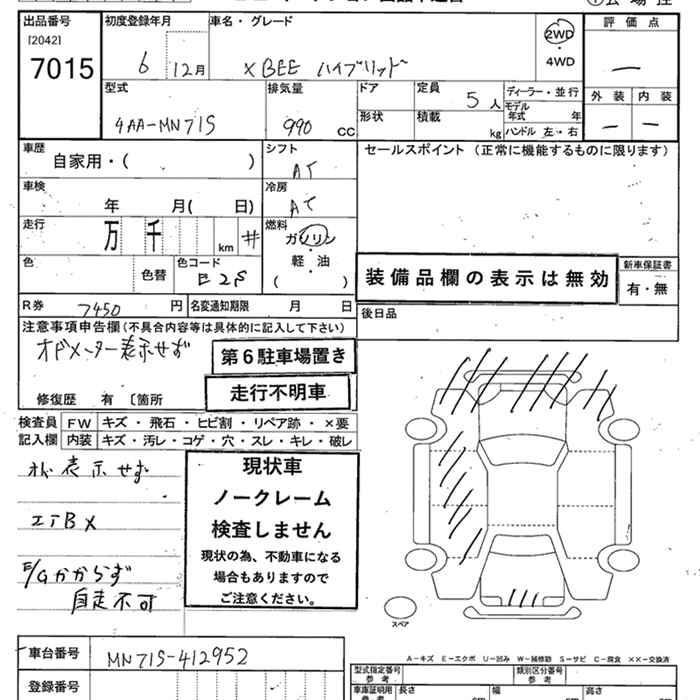 出品番号 初度登録年月 車名・グレード 評価点
[2042]
7015
6 12月 XBEE ハイブリッド 2WD・4WD
ー
型式 排気量 ドア 定員 5人 ディーラー・並行 外装 内装
モデル年式 年
4AA-MN71S 990 CC 形状 積載 kg ハンドル 左・右 ー ー
車歴 シフト セールスポイント (正常に機能するものに限ります)
自家用・( ) AT
車検 冷房
年 月( 日) AC
走行 燃料
万 千 km # ガソリン
色 色替 色コード 軽・油 装備品欄の表示は無効 新車保証書
E2S ( ) 有・無
R券 7450 円 名変通知期限 月 日 後日品
注意事項申告欄(不具合内容等は具体的に記入して下さい)
オドメーター表示せず 第6駐車場置き
走行不明車
修復歴 有 〔箇所
検査員 FW キズ・飛石・ヒビ割・リペア跡・×要
記入欄 内装 キズ・汚レ・コゲ・穴・スレ・キレ・破レ
表示せず 現状車
ノークレーム
エアB× 検査しません
現状の為、不動車になる
E/Gかからず 場合もありますので
自走不可 ご注意ください。
スペア
車台番号 MN71S-412952
A-キズ E-エクボ U-凹み W-補修跡 S-サビ C-腐食 ××-交換済
型式指定番号 類別区分番号
参考 参考
登録番号 車庫証明用 長さ 幅 高さ